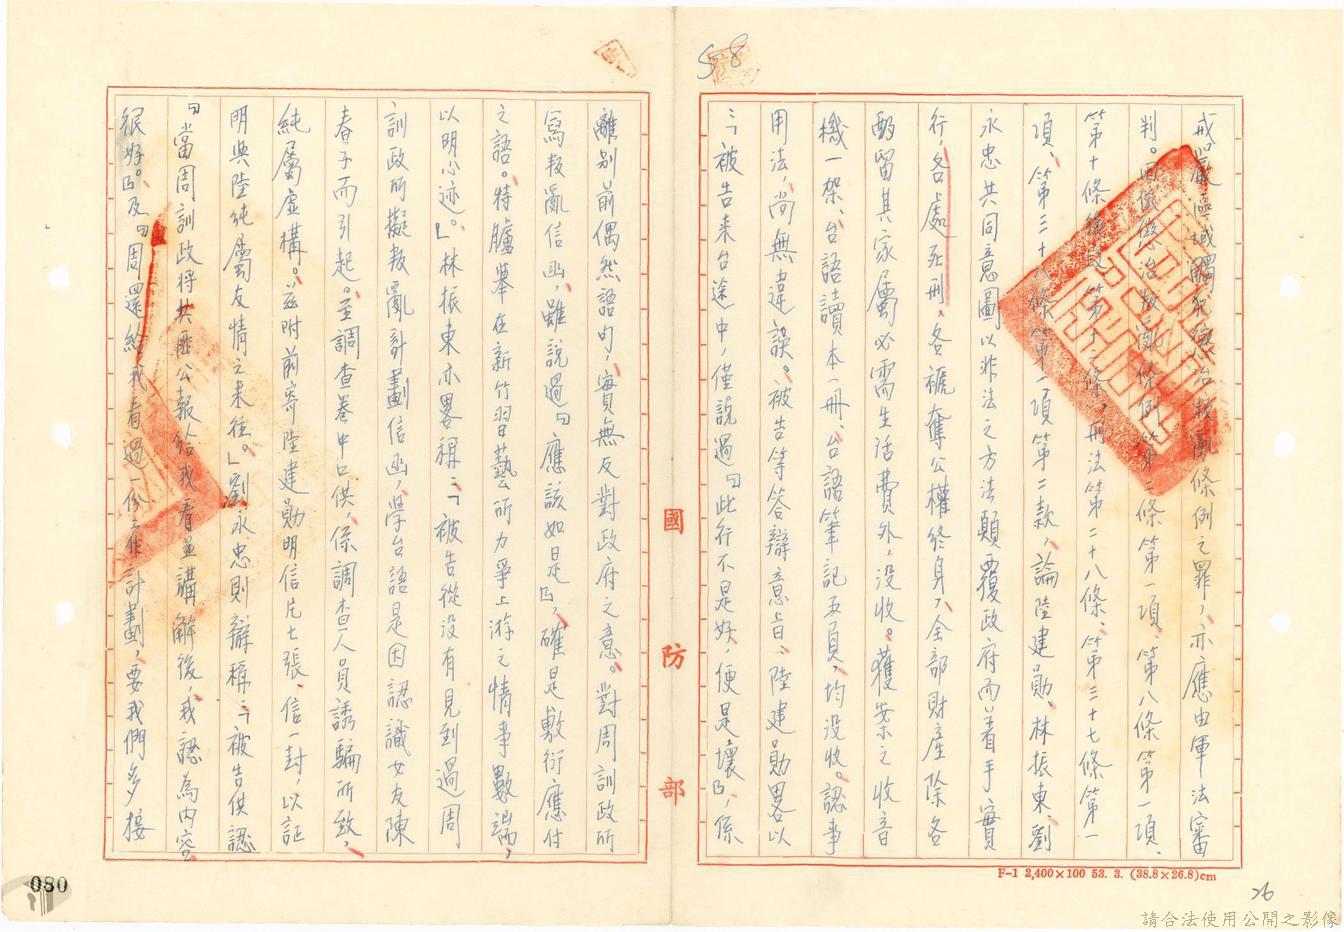 戒嚴區域觸犯懲治叛亂條例之罪,亦應由軍法審
判。因依懲治叛亂條例第二條第一項、第八條第一項、
第十條後段、第十二條,刑法第二十八條、第三十七條第一
項、第三十八條第一項第二款,論陸建勛、林振東、劉
永忠共同意圖以非法之方法顛覆政府而着手實
行,各處死刑,各褫奪公權終身,全部財產除各
酌留其家屬必需生活費外,沒收。獲案之收音
機一架、台語讀本一冊、台語筆記五頁,均沒收。認事
用法,尚無違誤。被告等答辯意旨、陸建勛畧以
:「被告來台途中,僅說過『此行不是好,便是壞』,係
離別前偶然語句,實無反對政府之意。對周訓政所
寫叛亂信函,雖說過『應該如是』,確是敷衍應付
之語。特臚舉在新竹習藝所力爭上游之情事數端,
以明心迹」。林振東亦畧稱:「被告從沒有見到過周
訓政所擬叛亂計劃信函,學台語是因認識女友陳
春子而引起。至調查卷中口供,係調查人員誘騙所致,
純屬虛構。茲附前寄陸建勛明信片七張、信一封,以証
明與陸純屬友情之来往。」劉永忠則辯稱:「被告供認
『當周訓政將共匪公報人給我看並講解後,我認為內容
很好。』及『周還給我看過一份工作計劃,要我們多接
國防部
F-1 2,400×100 53. 3. (38.8×26.8)cm
58
26
080
請合法使用公開之影像